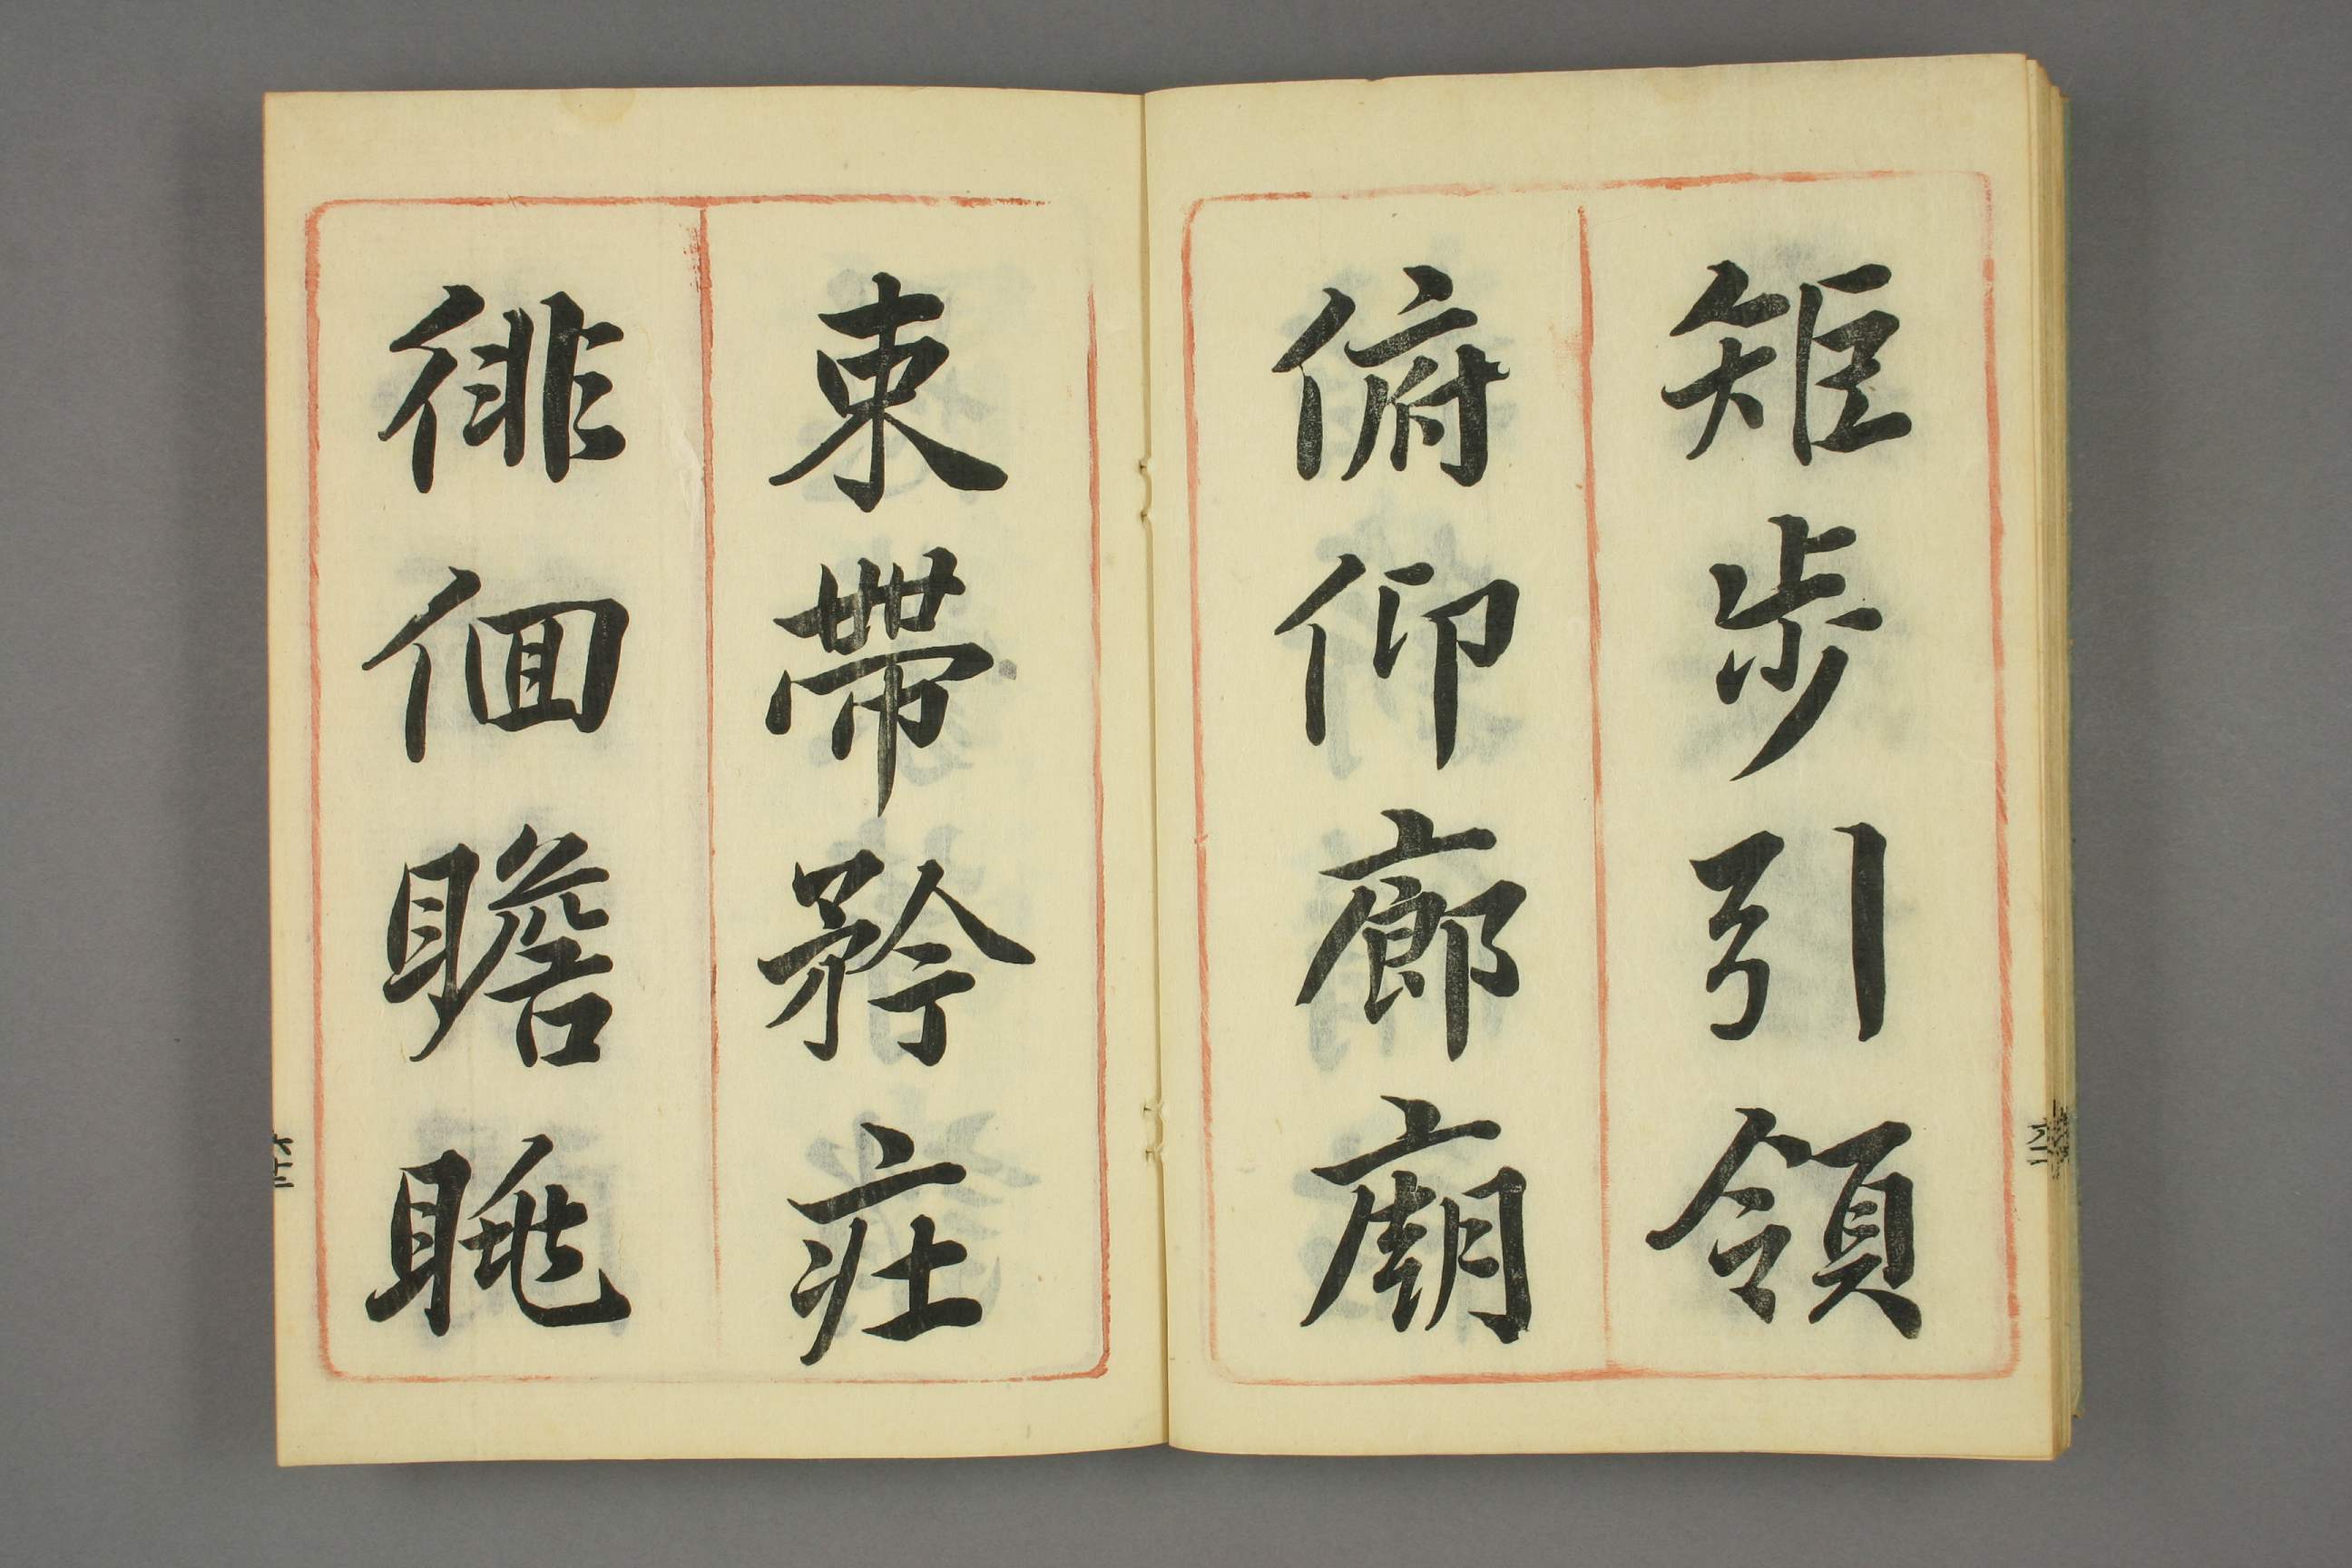 矩步引領
俯仰廊廟
束帶矜莊
徘徊瞻眺
六十二